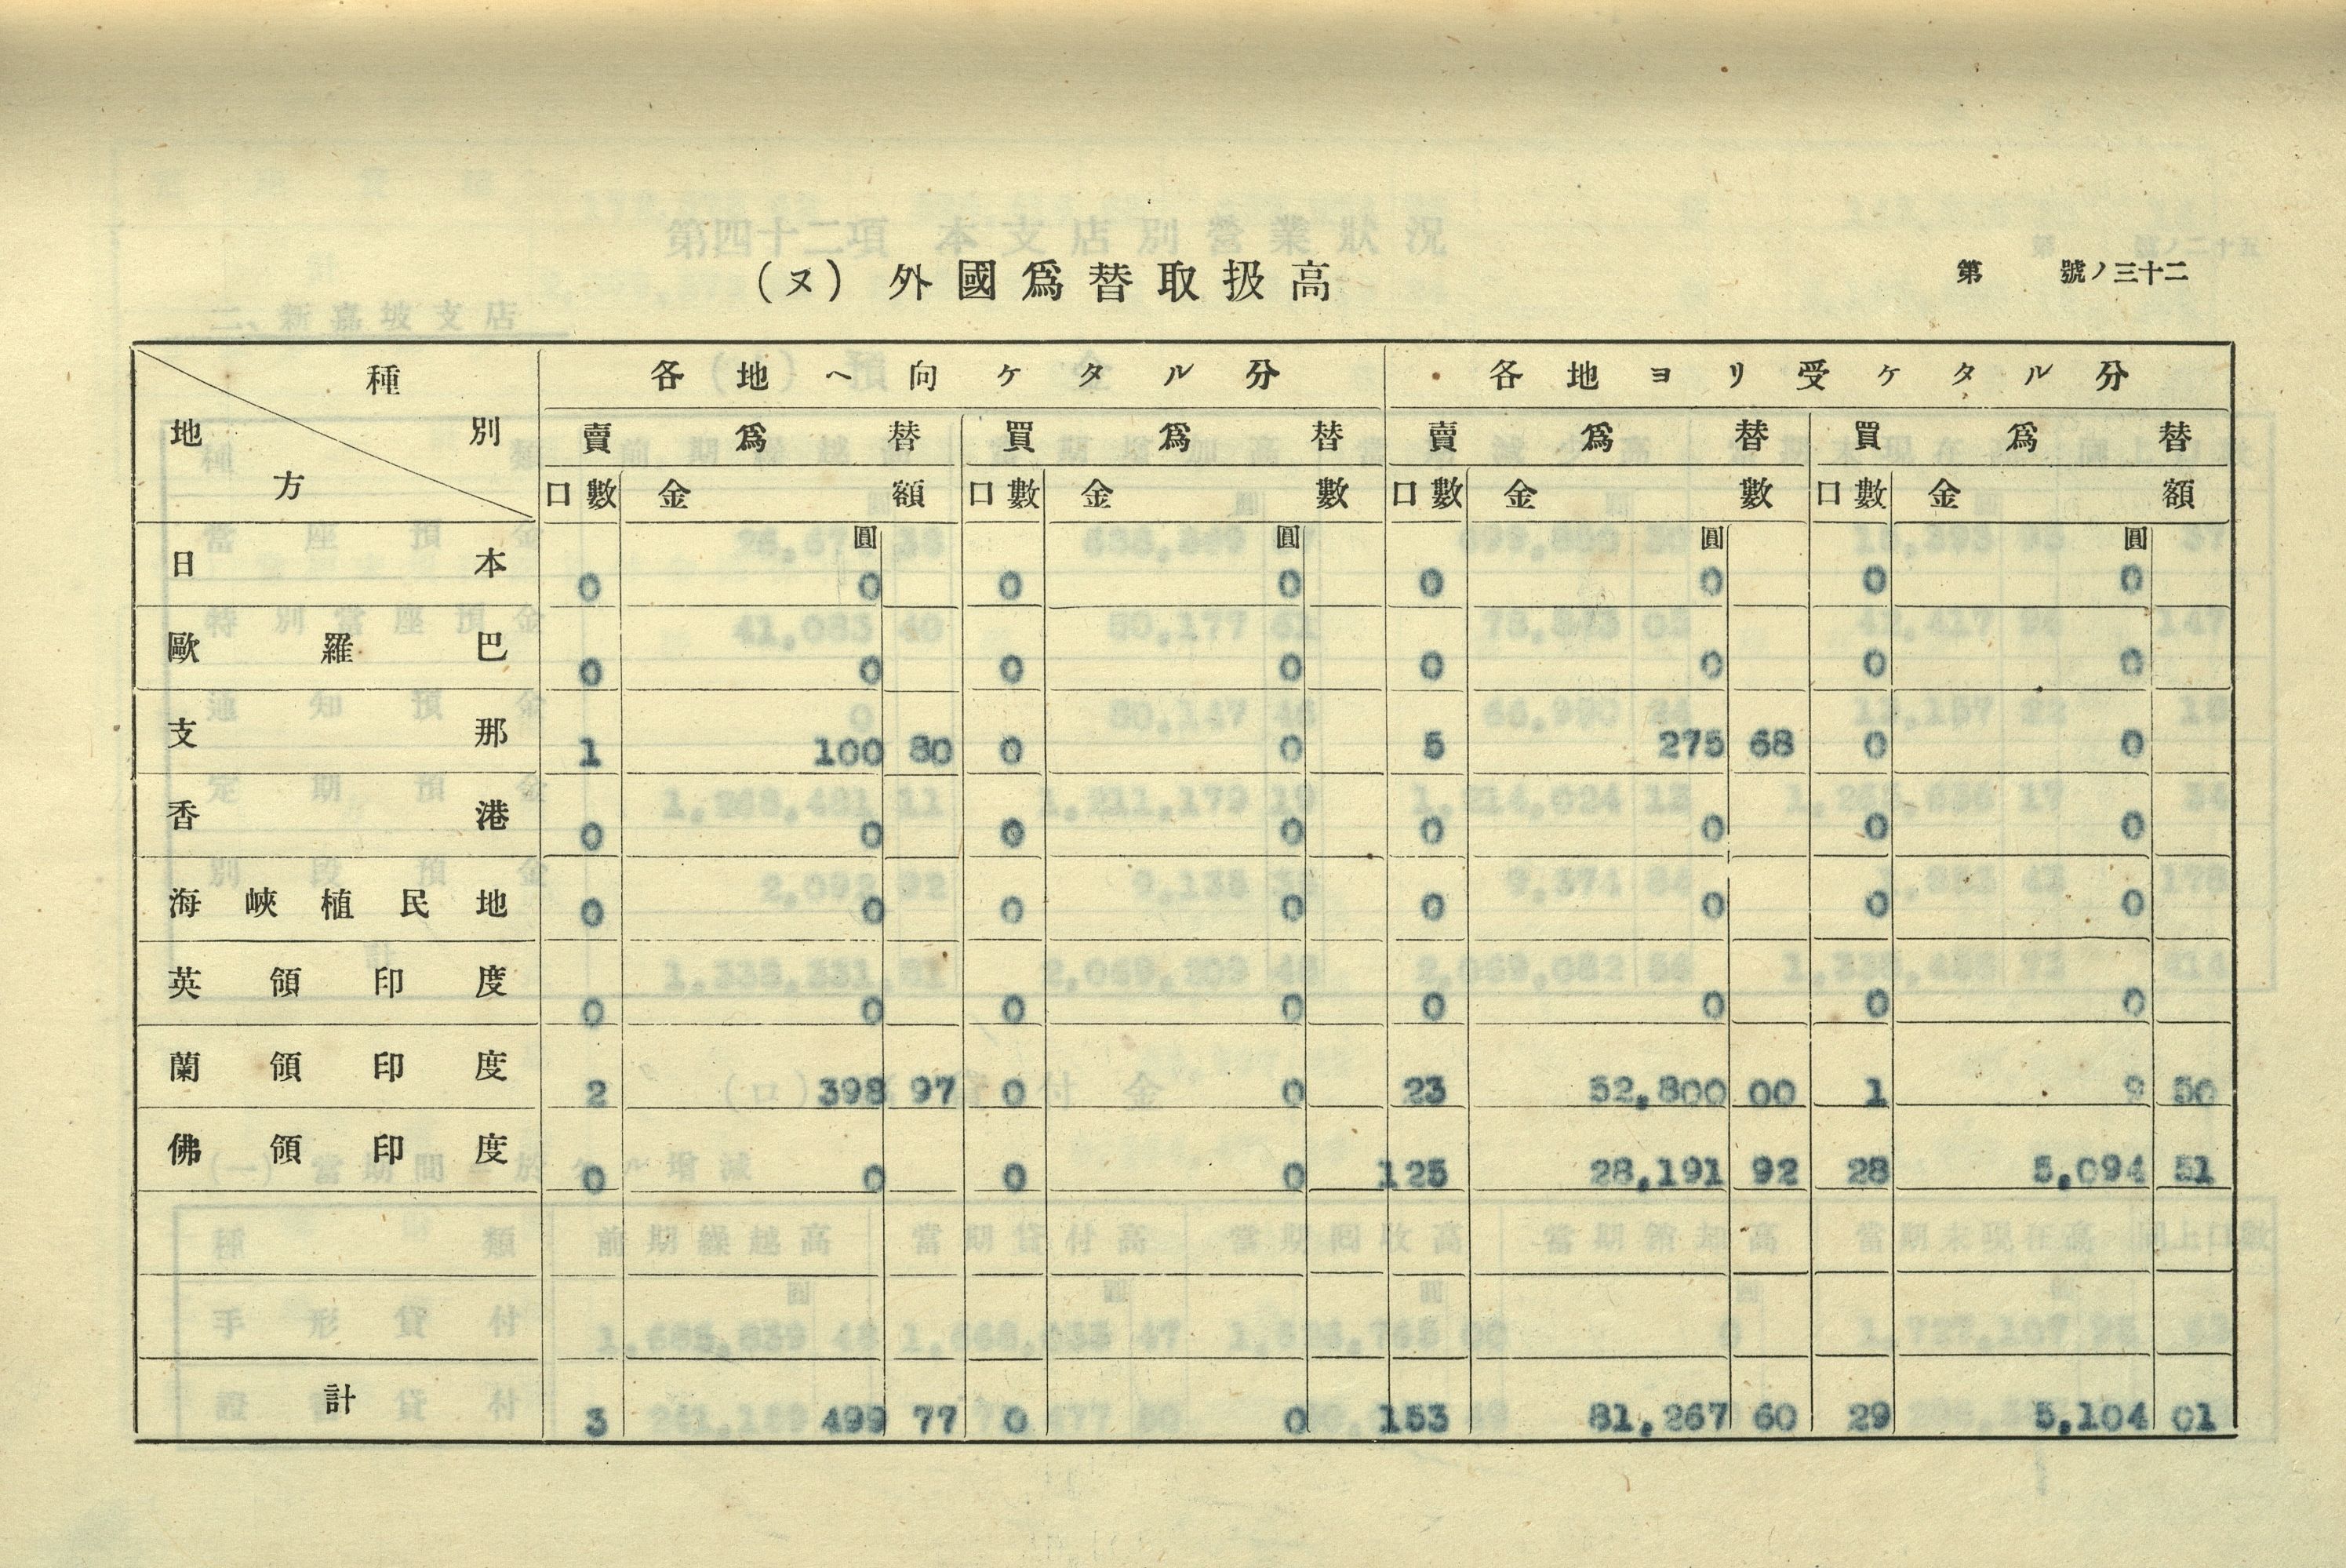 第 號ノ三十二
(ヌ) 外國爲替取扱高
種別 地方 各地ヘ向ケタル分 各地ヨリ受ケタル分
賣爲替 買爲替 賣爲替 買爲替
口數 金額 口數 金數 口數 金數 口數 金額
圓 圓 圓 圓
日本 0 0 0 0 0 0 0 0
歐羅巴 0 0 0 0 0 0 0 0
支那 1 100 80 0 0 5 275 68 0 0
香港 0 0 0 0 0 0 0 0
海峽植民地 0 0 0 0 0 0 0 0
英領印度 0 0 0 0 0 0 0 0
蘭領印度 2 398 97 0 0 23 52,800 00 1 9 50
佛領印度 0 0 0 0 125 28,191 92 28 5,094 51
計 3 499 77 0 0 153 81,267 60 29 5,104 01